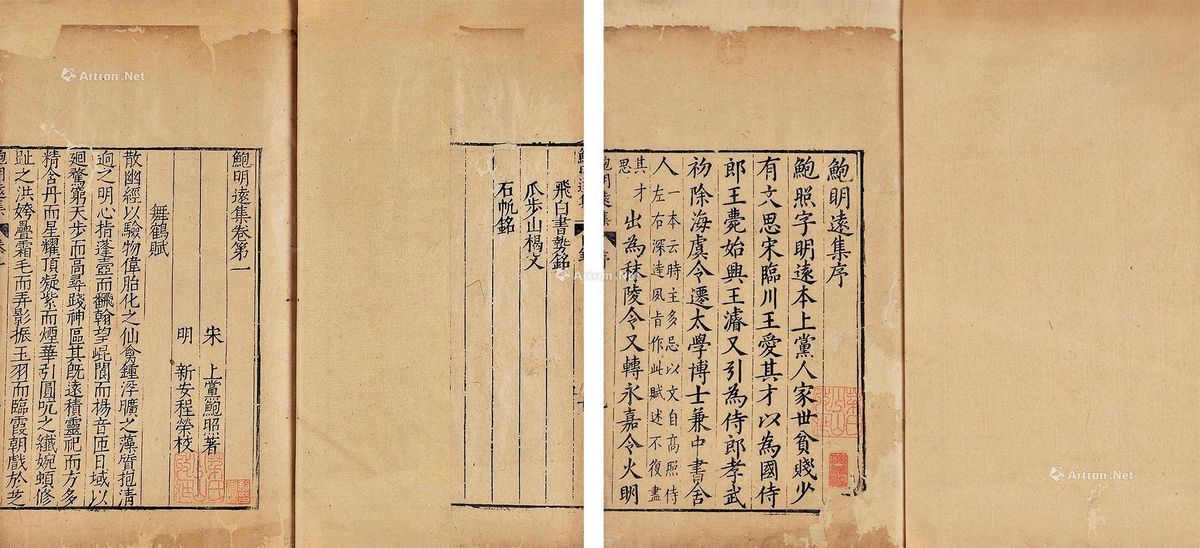 鮑明遠集序
鮑照字明遠本上黨人家世貧賤少
有文思宋臨川王愛其才以為國侍
郎王薨始興王濬又引為侍郎孝武
初除海虞令遷太學博士兼中書舍
人一本云時主多忌以文自高照侍
左右深逺風旨作此賦述不復盡
其才
思
出為秣陵令又轉永嘉令火明
鮑明遠集
序
飛白書勢銘
瓜步山楬文
石帆銘
鮑明遠集卷第一
宋 上黨鮑昭著
明 新安程榮校
舞鶴賦
散幽經以驗物偉胎化之仙禽鍾浮曠之藻質抱清
逈之明心指蓬壺而飜翰望崐閬而揚音匝日域以
廻騖窮天步而高尋踐神區其既遠積靈祀而方多
精含丹而星耀頂凝紫而煙華引圓吭之纖婉頓修
趾之洪姱疊霜毛而弄影振玉羽而臨霞朝戲於芝
鮑明遠集
Artron.Net
Artron.Net
Artron.Net